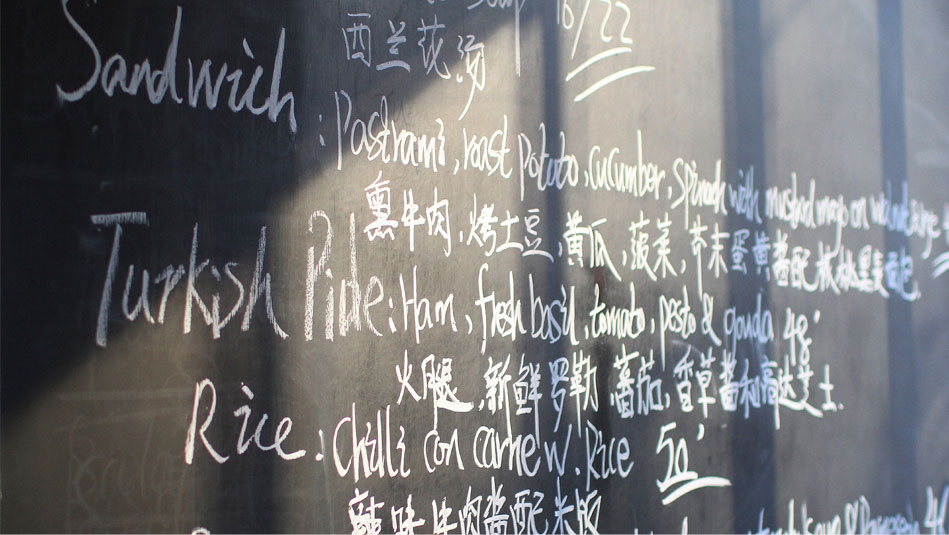 Soup 16/22
西兰花汤
Sandwich : Pastrami, roast Potato, cucumber, Spinach with mustard mayo on walnut
熏牛肉,烤土豆,黄瓜,菠菜,芥末蛋黄酱配核桃黑麦面包.
Turkish Pide: Ham, fresh basil, tomato, pesto & gouda 48
火腿,新鲜罗勒,蕃茄,香草酱和高达芝士.
Rice : Chilli con carne w. Rice 50
辣味牛肉酱配米饭
Soup &